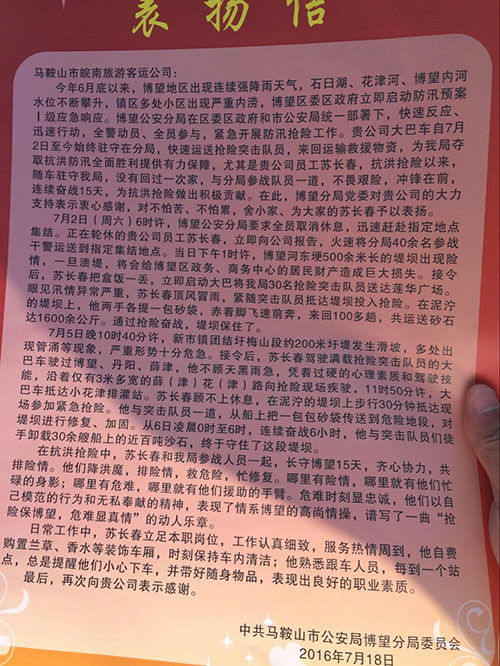 表扬信
马鞍山市皖南旅游客运公司：
今年6月底以来，博望地区出现连续强降雨天气，石臼湖、花津河、博望内河
水位不断攀升，镇区多处小区出现严重内涝，博望区委区政府立即启动防汛预案
Ⅰ级应急响应。博望公安分局在区委区政府和市公安局统一部署下，快速反应、
迅速行动，全警动员、全员参与，紧急开展防汛抢险工作。贵公司大巴车自7月
2日至今始终驻守在分局，快速运送抢险突击队员，来回运输救援物资，为我局夺
取抗洪防汛全面胜利提供有力保障，尤其是贵公司员工苏长春，抗洪抢险以来，
随车驻守我局，没有回过一次家，与分局参战队员一道，不畏艰险，冲锋在前，
连续奋战15天，为抗洪抢险做出积极贡献。在此，博望分局党委对贵公司的大力
支持表示衷心感谢，对不怕苦、不怕累，舍小家、为大家的苏长春予以表扬。
7月2日（周六）6时许，博望公安分局要求全员取消休息，迅速赶赴指定地点
集结。正在轮休的贵公司员工苏长春，立即向公司报告，火速将分局40余名参战
干警运送到指定集结地点。当日下午1时许，博望河东埂500余米长的堤坝出现险
情，一旦溃堤，将会给博望区政务、商务中心的居民财产造成巨大损失。接令
后，苏长春把盒饭一丢，立即启动大巴将我局30名抢险突击队员送达莲华广场。
眼见汛情异常严重，苏长春顶风冒雨，紧随突击队员抵达堤坝投入抢险。在泥泞
的堤坝上，他两手各提一包砂袋，赤着脚飞速前奔，来回100多趟，共运送砂石
达1600余公斤。通过抢险奋战，堤坝保住了。
7月5日晚10时40分，新市镇团结圩梅山段约200米圩堤发生滑坡，多处出
现管涌等现象，严重形势十分危急。接令后，苏长春驾驶满载抢险突击队员的大
巴车驶过博望、丹阳、薛津，他不顾天黑雨急，凭着过硬的心理素质和驾驶技
能，沿着仅有3米多宽的薛（津）花（津）路向抢险现场疾驶，11时50分许，大
巴车抵达小花津排灌站。苏长春顾不上休息，在泥泞的堤坝上步行30分钟抵达现
场参加紧急抢险。他与突击队员一道，从船上把一包包砂袋传送到危险地段，对
堤坝进行修复、加固。从6日凌晨0时至6时，连续奋战6小时，他与突击队员们徒
手卸载30余艘船上的近百吨沙石，终于守住了这段堤坝。
在抗洪抢险中，苏长春和我局参战人员一起，长守博望15天，齐心协力，共
排险情。他们降洪魔，排险情，救危险，忙修复。哪里有险情，哪里就有他们忙
碌的身影；哪里有危难，哪里就有他们援助的手臂。危难时刻显忠诚，他们以自
己模范的行为和无私奉献的精神，表现了情系博望的高尚情操，谱写了一曲“抢
险保博望，危难显真情”的动人乐章。
日常工作中，苏长春立足本职岗位，工作认真细致，服务热情周到，他自费
购置兰草、香水等装饰车厢，时刻保持车内清洁；他熟悉跟车人员，每到一个站
点，总是提醒他们小心下车，并带好随身物品，表现出良好的职业素质。
最后，再次向贵公司表示感谢。
中共马鞍山市公安局博望分局委员会
2016年7月18日